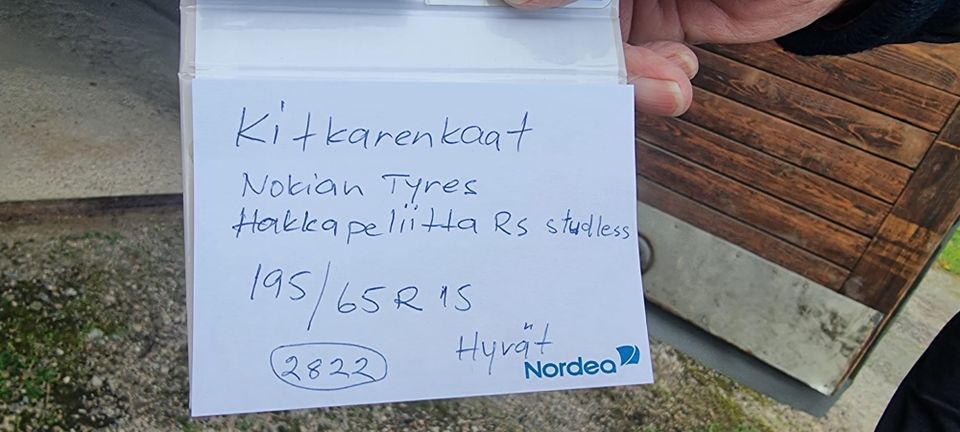 Kitkarenkaat
Nokian Tyres
Hakkapeliitta Rs studless
195/65R 15
2822
Hyvät
Nordea